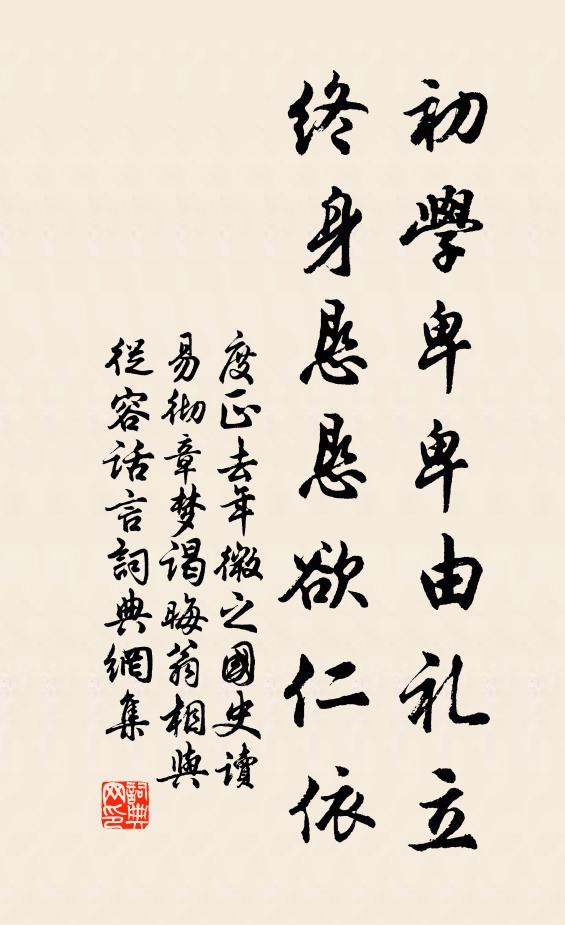 初學卑卑由礼立
終身恳恳欲仁依
度正去年微之國史讀
易彻章梦謁晦翁相與
從容话言詞典網集
詞典
网印